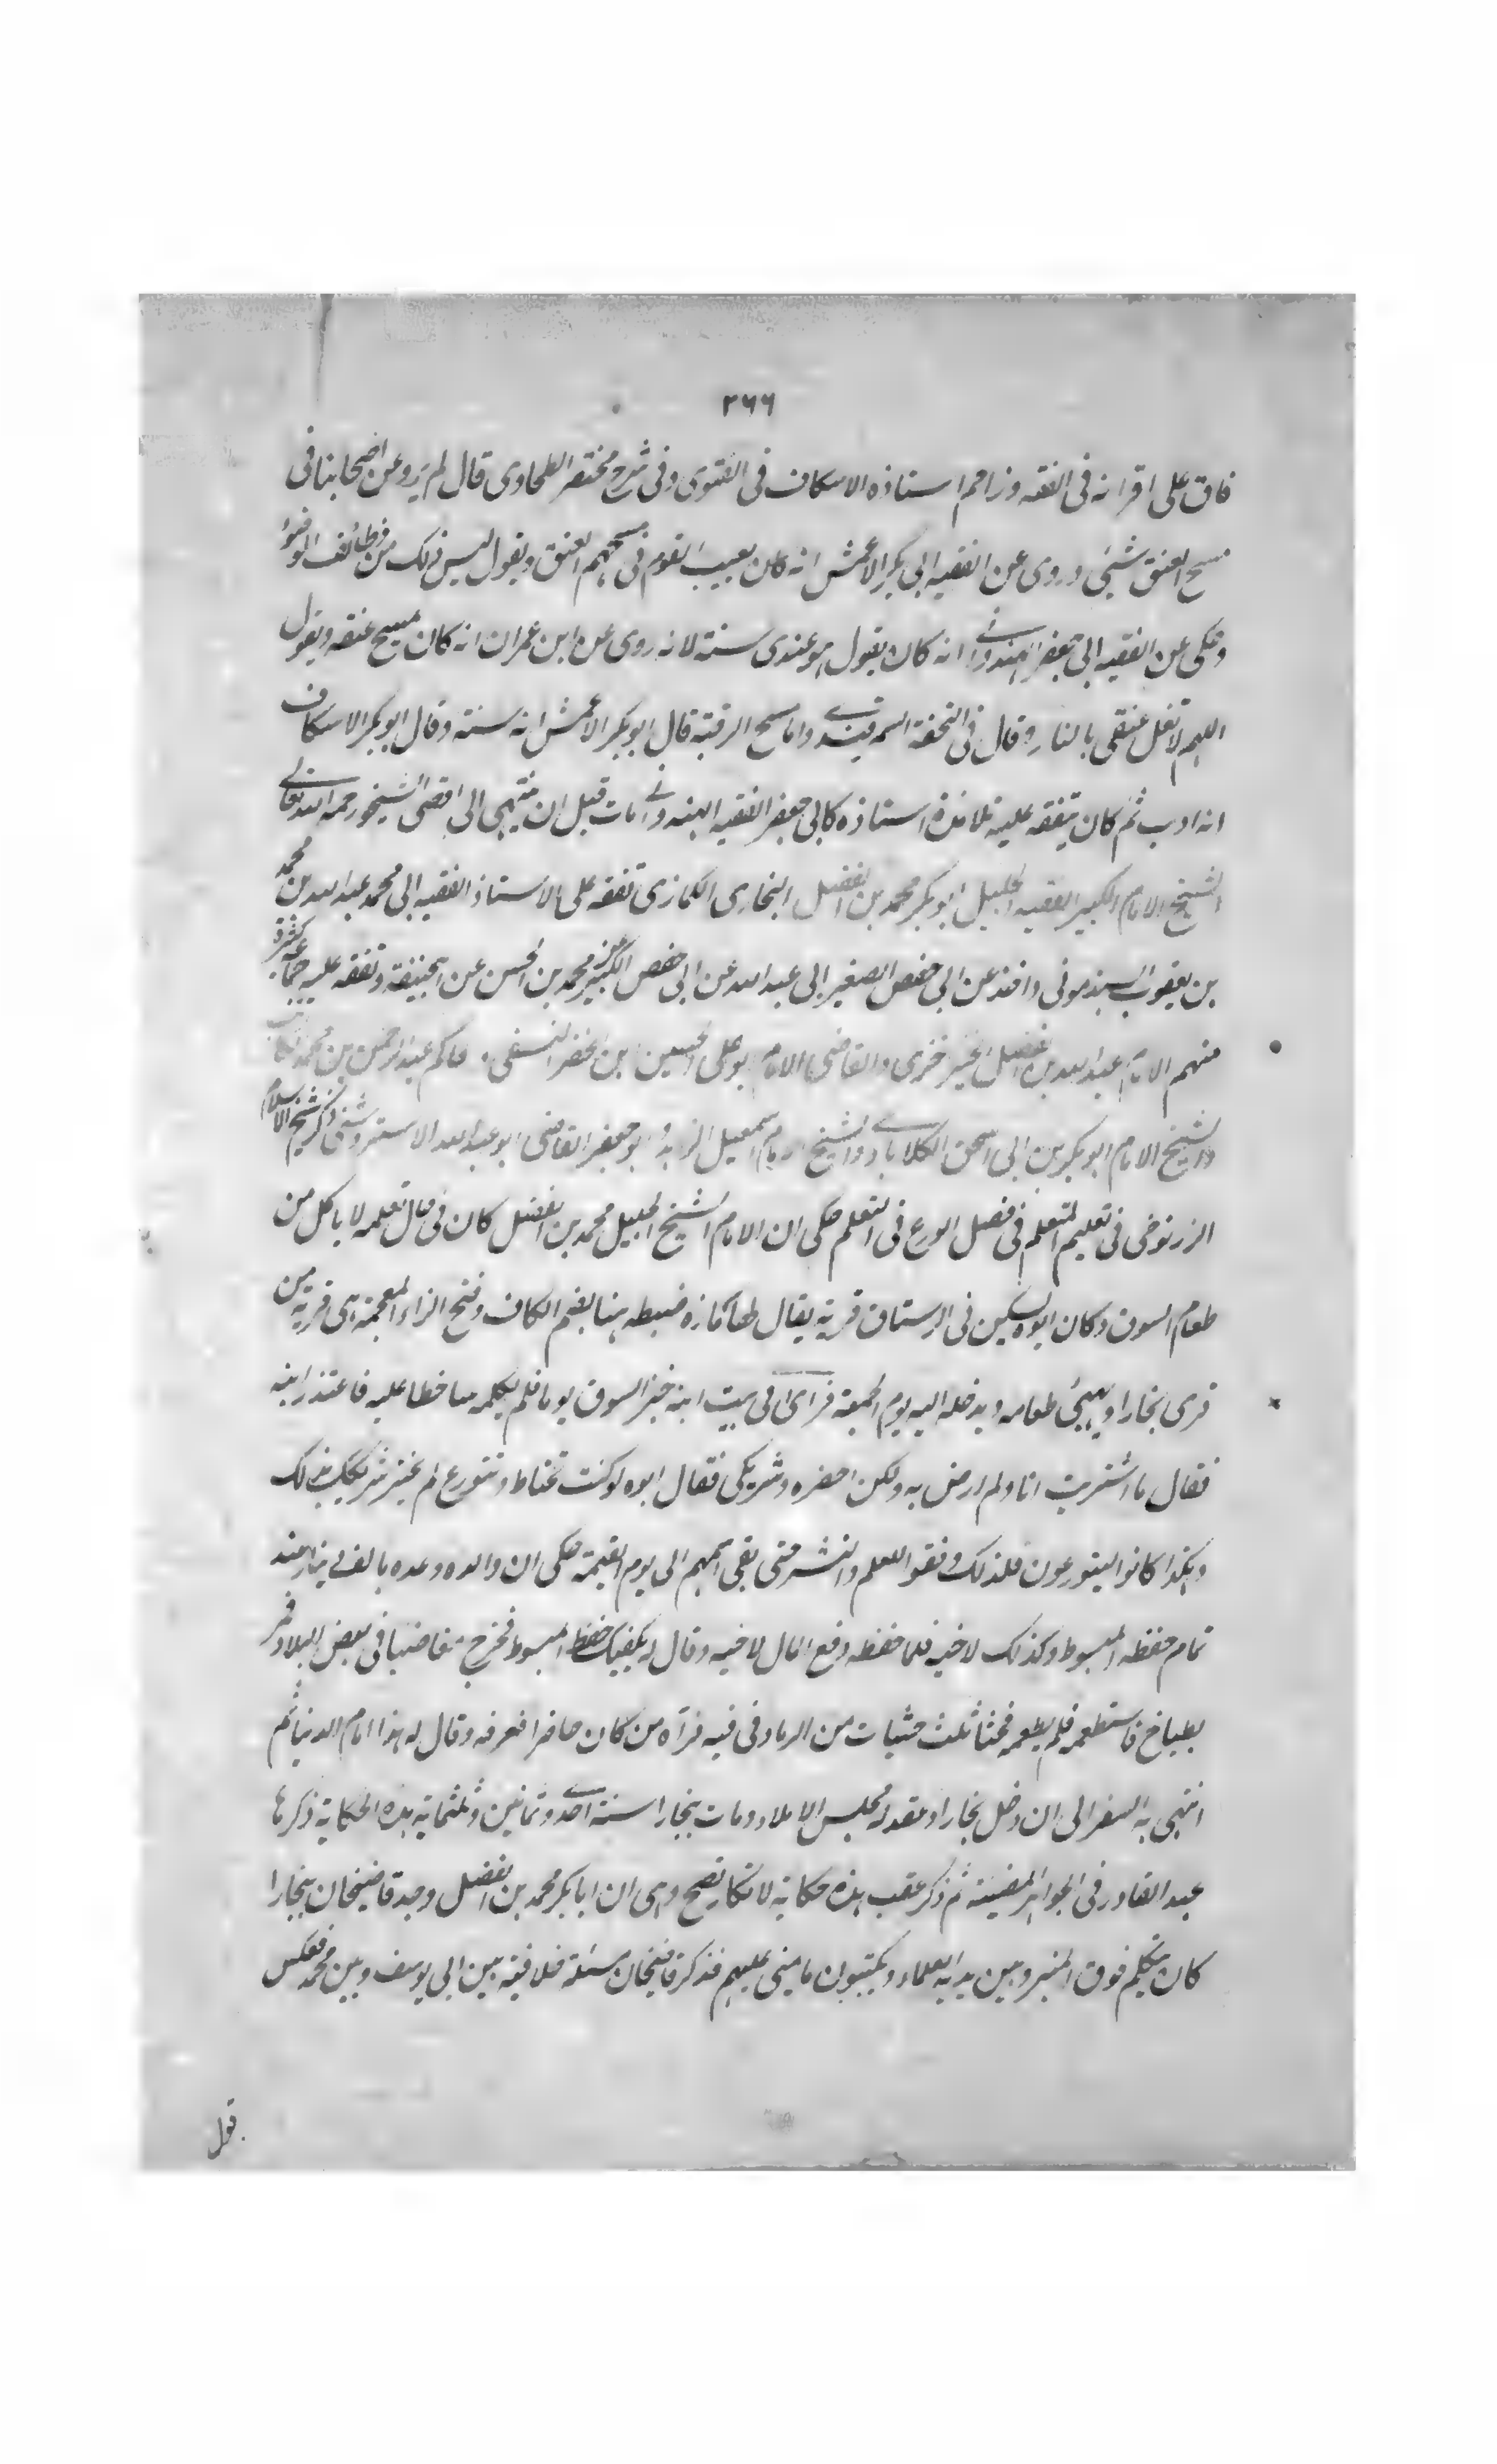 ٢٦٦
فاق على اقرانه فى الفقه وزاحم استاذه الاسكاف فى الفتوى وفى شرح مختصر الطحاوى قال لم يرو عن اصحابنا فى
مسح العنق شئ وروى عن الفقيه ابى بكر الاعمش انه كان يعيب القوم فى مسحهم العنق ويقول ليس ذلك من وظائف الوضوء
وحكى عن الفقيه ابى جعفر الهندوانى انه كان يقول هو عندى سنة لانه روى عن ابن عمران انه كان يمسح عنقه ويقول
اللهم لا تغل عنقى بالنار وقال فى التحفة السمرقندى واما مسح الرقبة قال ابو بكر الاعمش انه سنة وقال ابو بكر الاسكاف
انه ادب ثم كان يتفقه عليه تلامذة استاذه كابى جعفر الفقيه الهندوانى مات قبل ان ينتهى الى اقصى الشيخوخة رحمه الله تعالى
الشيخ الامام الكبير الفقيه الجليل ابو بكر محمد بن الفضل البخارى الكمازى تفقه على الاستاذ الفقيه ابى محمد عبد الله بن محمد
بن يعقوب السبذمونى واخذ عن ابى حفص الصغير ابى عبد الله عن ابى حفص الكبير عن محمد بن الحسن عن ابيحنيفة وتفقه عليه جماعة كثيرة
منهم الامام عبد الله بن الفضل الخيزاخزى والقاضى الامام ابو على الحسين بن الخضر النسفى حاكم عبد الرحمن بن محمد الكاتب
والشيخ الامام ابو بكر بن ابى اسحق الكلاباذى والشيخ الامام اسمعيل الزاهد وابو جعفر القاضى ابو عبد الله الاستروشنى ذكر شيخ الاسلام
الزرنوخى فى تعليم المتعلم فى فصل الورع فى التعلم حكى ان الامام الشيخ الجليل محمد بن الفضل كان فى حال تعلمه لا ياكل من
طعام السوق وكان ابوه يسكن فى الرستاق قرية يقال لها كمازه ضبطه هنا بضم الكاف وفتح الزاء المعجمة هى قرية من
قرى بخارا ويهيئ طعامه ويدخله اليه يوم الجمعة فرأى فى بيت ابنه خبز السوق يوما فلم يكلمه ساخطا عليه فاعتذر ابنه
فقال ما اشتريت انا ولم ارض به ولكن احضره شريكى فقال ابوه لو كنت تحتاط وتتورع لم يجتر شريكك بذلك
وهكذا كانوا يتورعون فلذلك وفقوا للعلم والنشر حتى بقى اسمهم الى يوم القيمة حكى ان والده وعده بالف دينار عند
تمام حفظه المبسوط وكذلك لاخيه فلما حفظه دفع المال لاخيه وقال له يكفيك حفظ المبسوط فخرج مغاضبا فى بعض البلاد فمر
بطباخ فاستطعمه فلم يطعمه فحثا ثلث حثيات من الرماد فى فيه فرآه من كان حاضرا فعرفه وقال له هذا امام الدنيا ثم
انتهى به السفر الى ان دخل بخارا وعقد له مجلس الاملاء ومات ببخارا سنة احدى وثمانين وثلثماية هذه الحكاية ذكرها
عبد القادر فى الجواهر المضيئة ثم ذكر عقب هذه حكاية لا تكاد تصح وهى ان ابا بكر محمد بن الفضل وجد قاضيخان ببخارا
كان يتكلم فوق المنبر وبين يديه العلماء ويكتبون ما يملى عليهم فذكر قاضيخان مسئلة خلافية بين ابى يوسف وبين محمد فعكس
قول